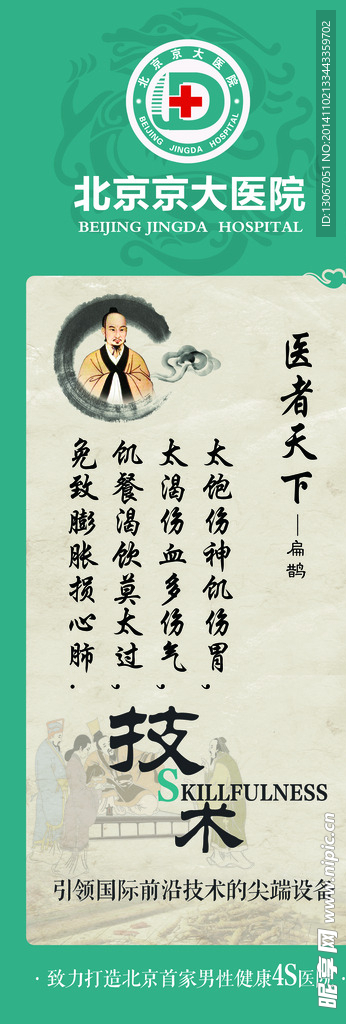 北京京大医院
BEIJING JINGDA HOSPITAL
北京京大医院
BEIJING JINGDA HOSPITAL
ID:13067051 NO:20141102133443359702
医者天下
——扁鹊
太饱伤神饥伤胃，
太渴伤血多伤气，
饥餐渴饮莫太过，
免致膨胀损心肺．
技术
SKILLFULNESS
引领国际前沿技术的尖端设备
·致力打造北京首家男性健康4S医院·
昵享网 www.nipic.cn